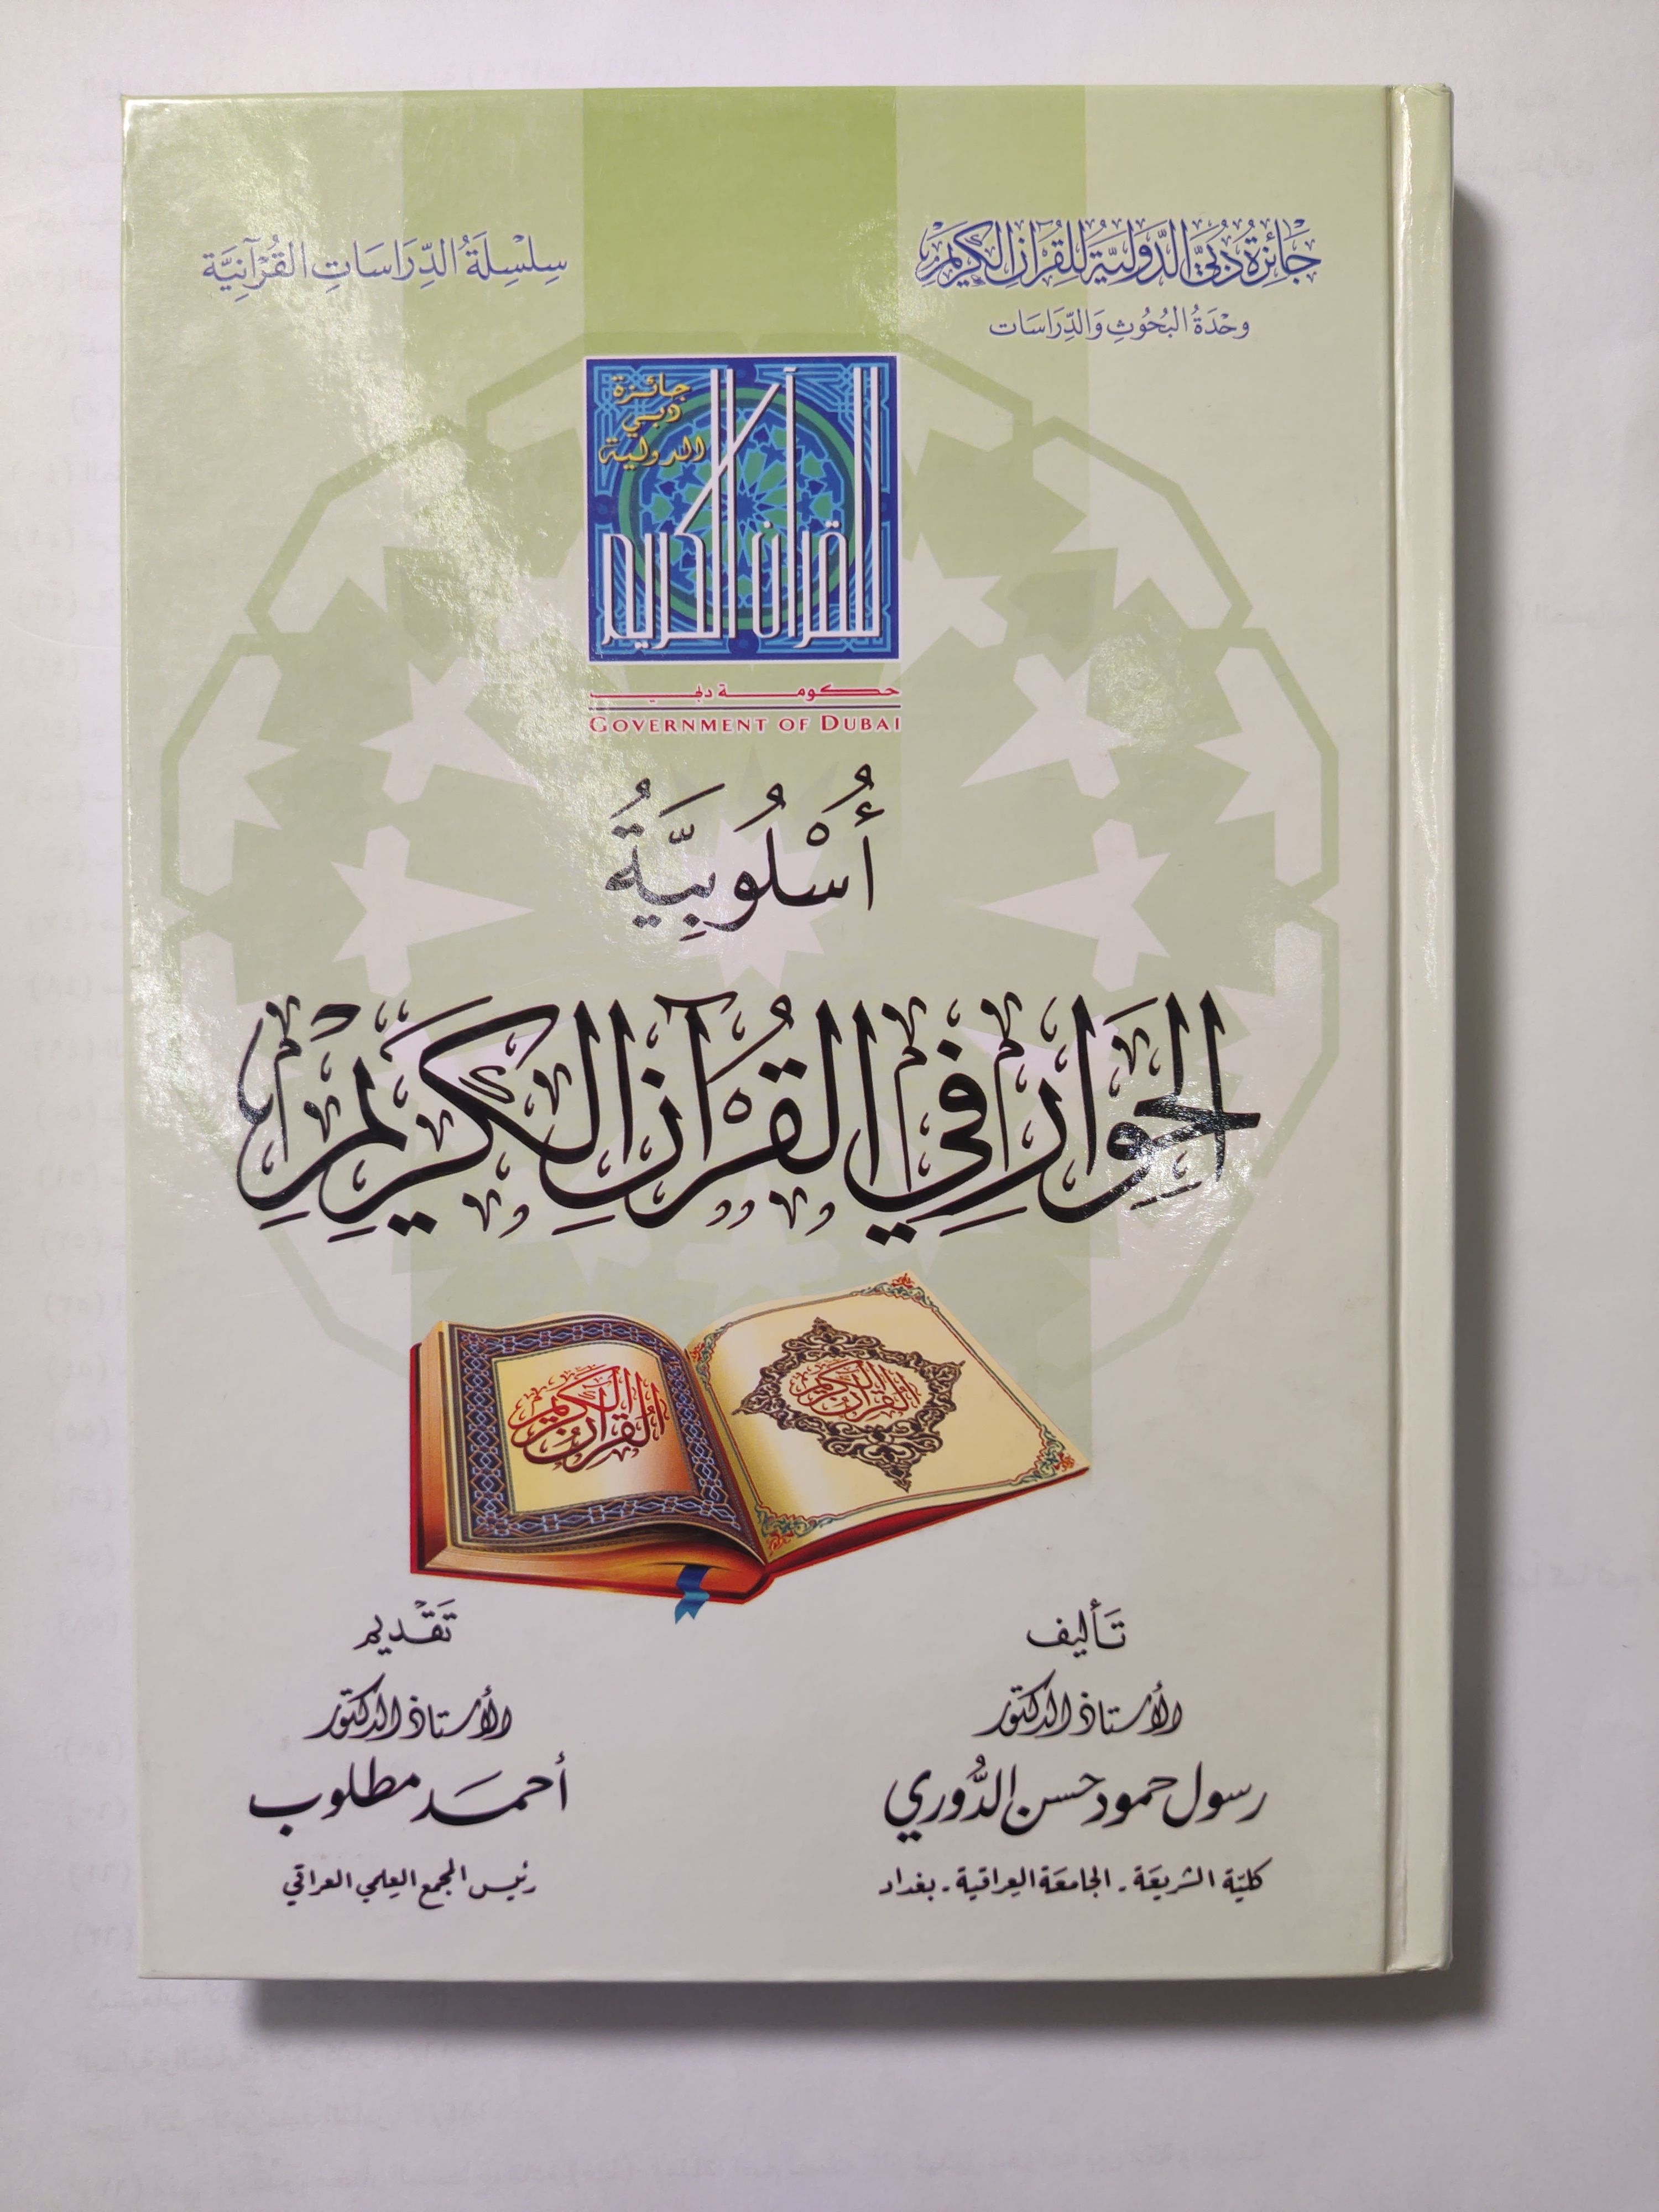 جَائِزَةُ دُبَيّ الدَّوليَّةُ لِلْقُرْآنِ الْكَرِيمْ
وَحْدَةُ البُحُوثِ وَالدِّرَاسَات
سِلْسِلَةُ الدِّرَاسَاتِ القُرْآنِيَّة
جائزة
دبي
الدولية
للقرآن الكريم
حكومة دبي
GOVERNMENT OF DUBAI
أُسْلُوبِيَّةُ
الحِوَارِ فِي القُرْآنِ الكَرِيمِ
القرآن الكريم
القرآن الكريم
تَأليف
الأستاذ الدكتور
رسول حمود حسن الدُّوري
كليّة الشريعَة - الجامعَة العِراقية - بغداد
تَقْديم
الأستاذ الدكتور
أحمَد مطلوب
رئيس المجمع العِلمي العراقي